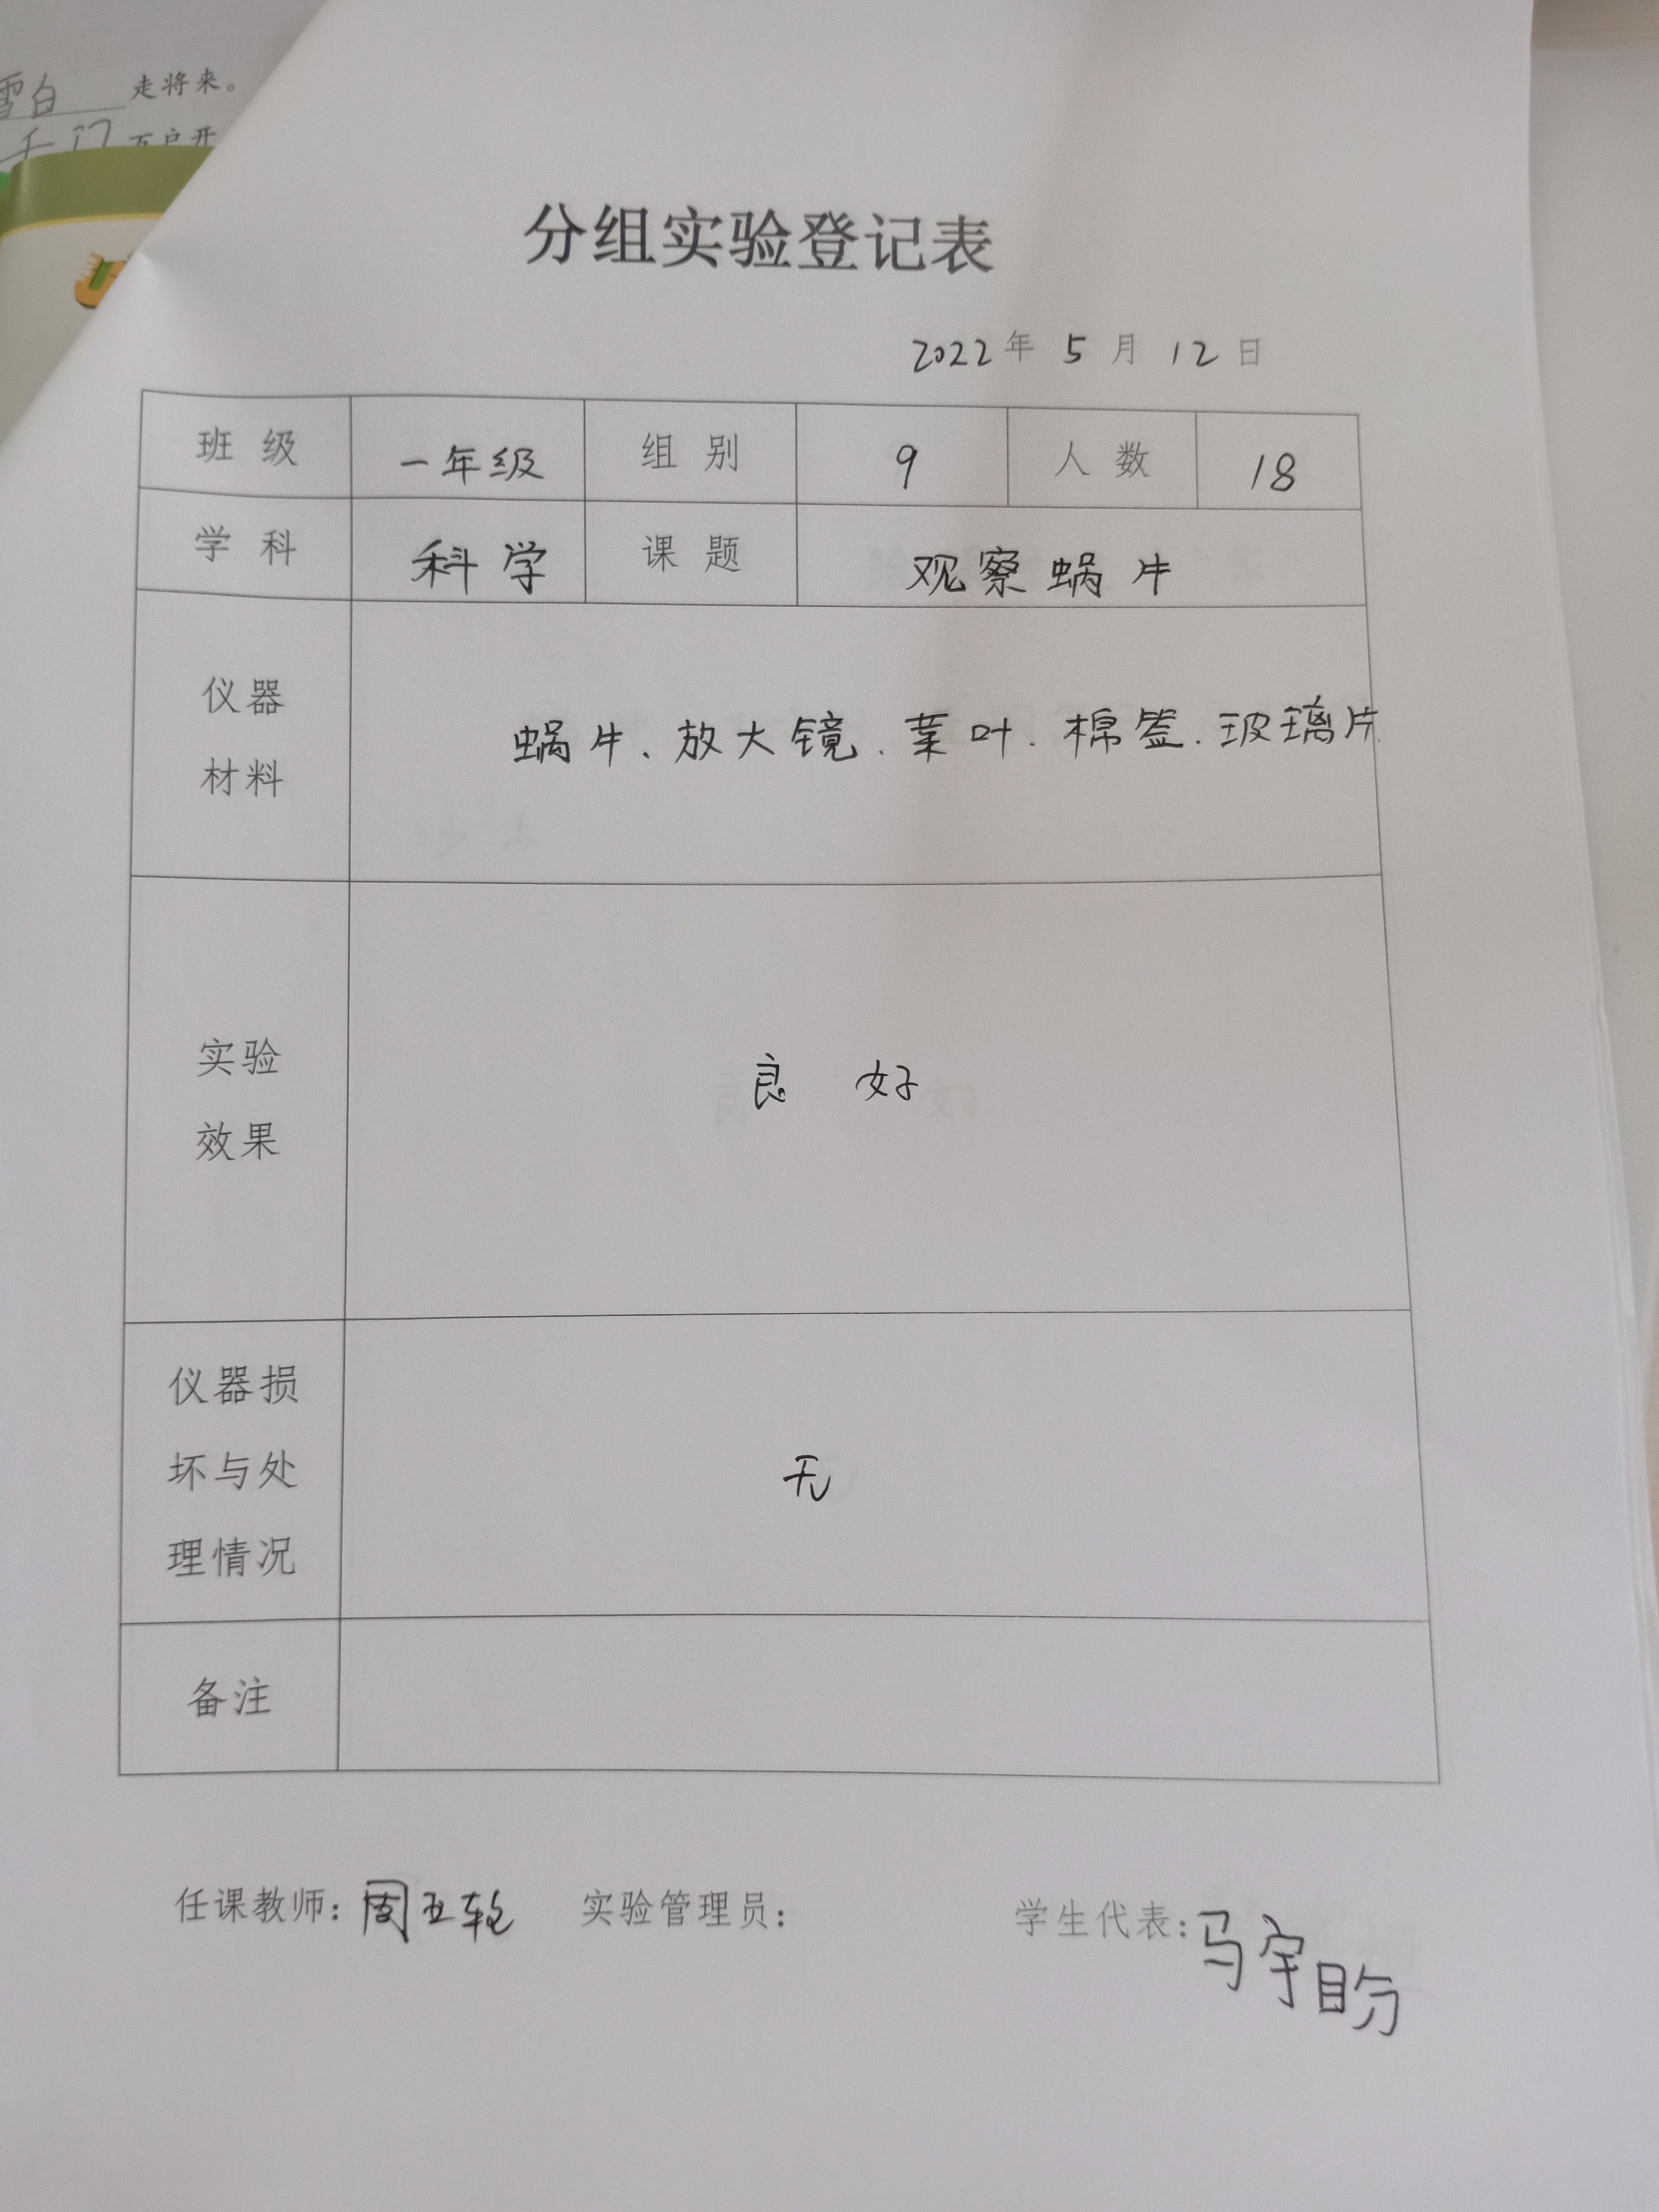 雪白 走将来。
千门 万户开
分组实验登记表
2022年 5 月 12 日
班 级 一年级 组 别 9 人 数 18
学 科 科学 课 题 观察蜗牛
仪器
材料
蜗牛、放大镜、菜叶、棉签、玻璃片
实验
效果
良 好
仪器损
坏与处
理情况
无
备注
任课教师: 周 实验管理员: 学生代表: 马宇盼